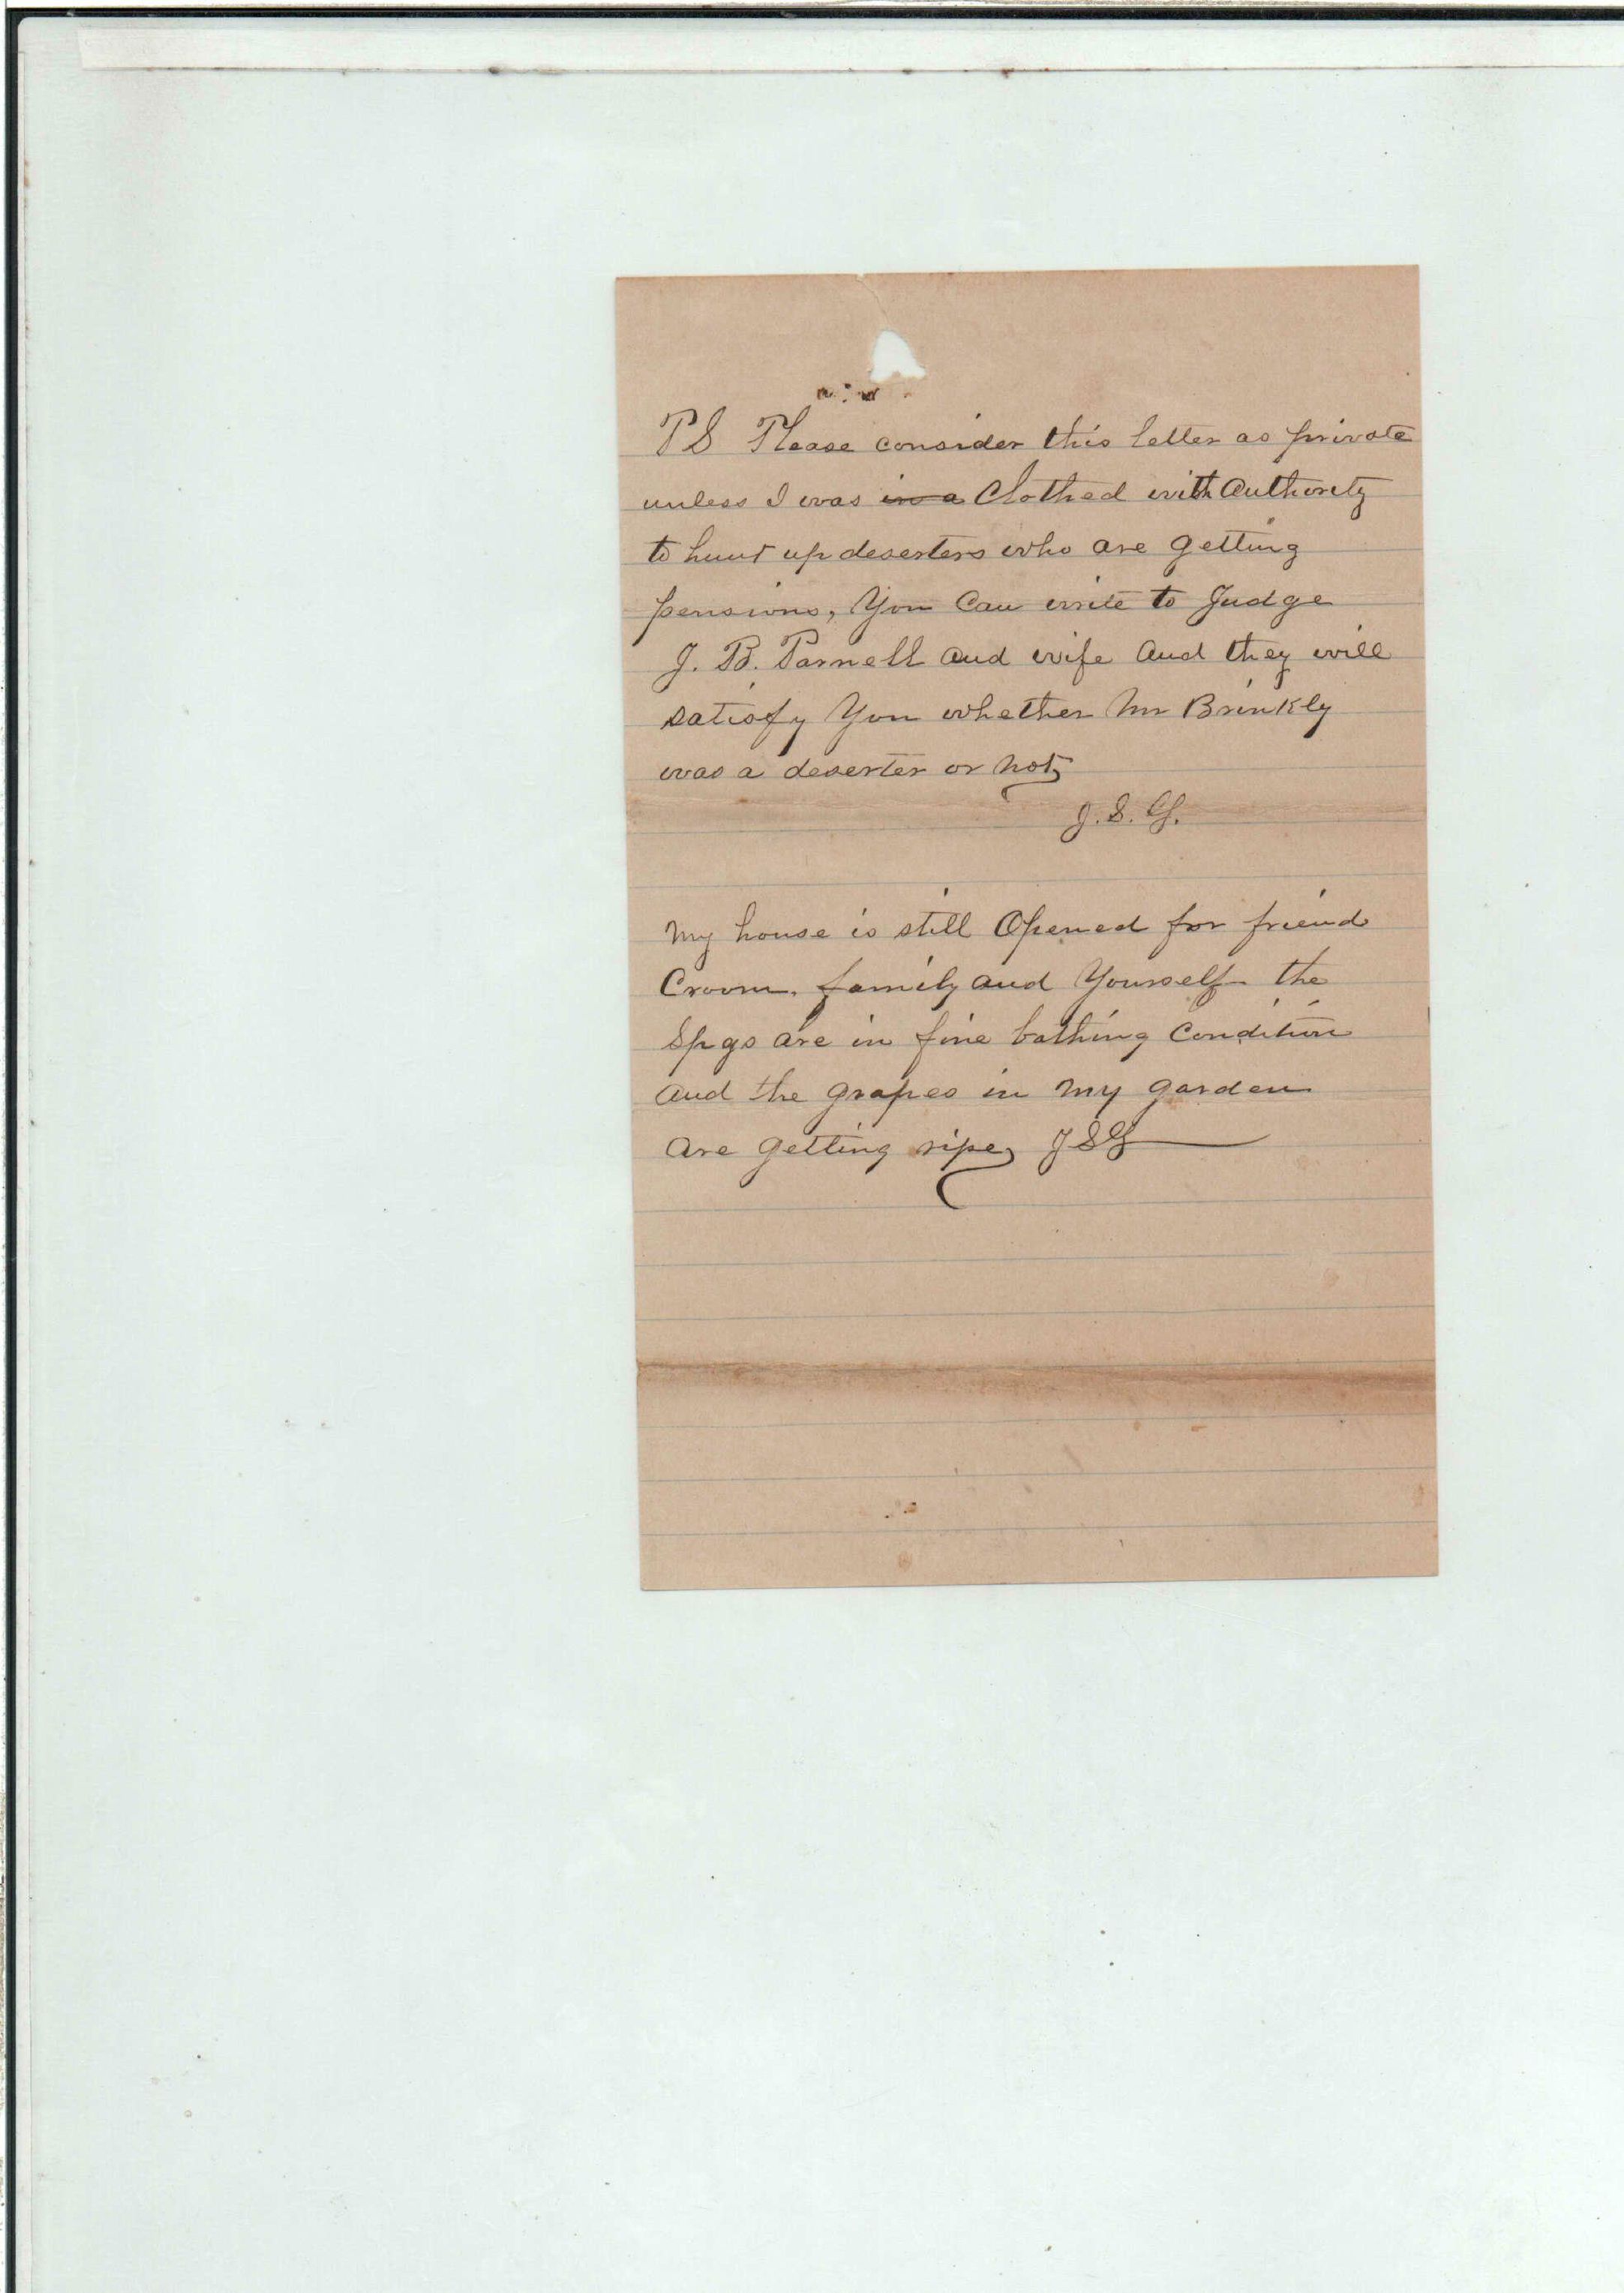 PS Please consider this letter as private
unless I was in a Clothed with Authority
to hunt up deserters who are getting
pensions, You Can write to Judge
J. B. Parnell and wife and they will
satisfy You whether Mr Brinkly
was a deserter or not,
J. S. G.
My house is still Opened for friend
Croom, family and Yourself the
Spgs are in fine bathing Condition
and the grapes in my garden
are getting ripe, J S G